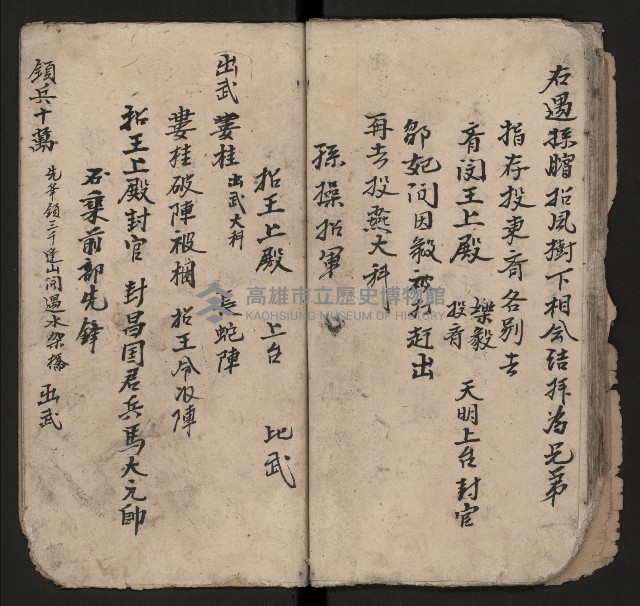 右遇孫臏招风樹下相会結拜为兄弟
指存投東斉各別去
斉闵王上殿 樂毅投斉 天明上台封官
鄒妃问因毅被打赶出
再去投燕大科
孫操招軍
招王上殿 上台 比武
出武 婁桂 出武大科 長蛇陣
婁桂破陣被梱 招王令收陣
招王上殿封官 封昌国君兵馬大元帥
石秉前部先鋒
領兵十萬 先爷領三千逢山闹遇水架橋 出武
高雄市立歷史博物館
KAOHSIUNG MUSEUM OF HISTORY